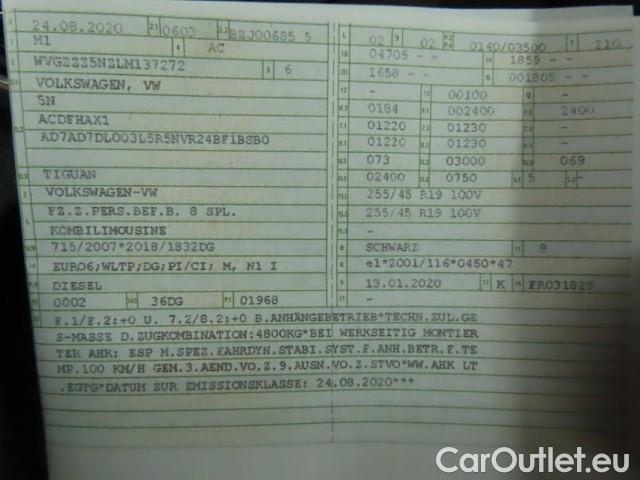 24.08.2020 2.1 0603 2.2 BZJ00685 5
M1 4 AC
WVGZZZ5NZLM137272 3 6
VOLKSWAGEN, VW
5N
ACDFHAX1
AD7AD7DL003L5R5NVR24BF1BSB0
TIGUAN
VOLKSWAGEN-VW
FZ.Z.PERS.BEF.B. 8 SPL.
KOMBILIMOUSINE
715/2007*2018/1832DG
EURO6;WLTP;DG;PI/CI; M, N1 I
DIESEL
0002 36DG 01968
L 02 9 02 0140/03500 T 210
04705 - - 1859 - -
1658 - - 001805 - -
- 00100 -
0184 002400 2400
01220 01230 -
01220 01230 -
073 03000 069
02400 0750 5 -
255/45 R19 100V
255/45 R19 100V
-
SCHWARZ 11 9
e1*2001/116*0450*47
13.01.2020 17 K FR031829
-
F.1/F.2:+0 U. 7.2/8.2:+0 B.ANHÄNGEBETRIEB*TECHN.ZUL.GE
S-MASSE D.ZUGKOMBINATION:4800KG*BEI WERKSEITIG MONTIER
TER AHK: ESP M.SPEZ.FAHRDYN.STABI.SYST.F.ANH.BETR.F.TE
MP.100 KM/H GEM.3.AEND.VO.Z.9.AUSN.VO.Z.STVO*WW.AHK LT
.EGTG*DATUM ZUR EMISSIONSKLASSE: 24.08.2020***
CarOutlet.eu